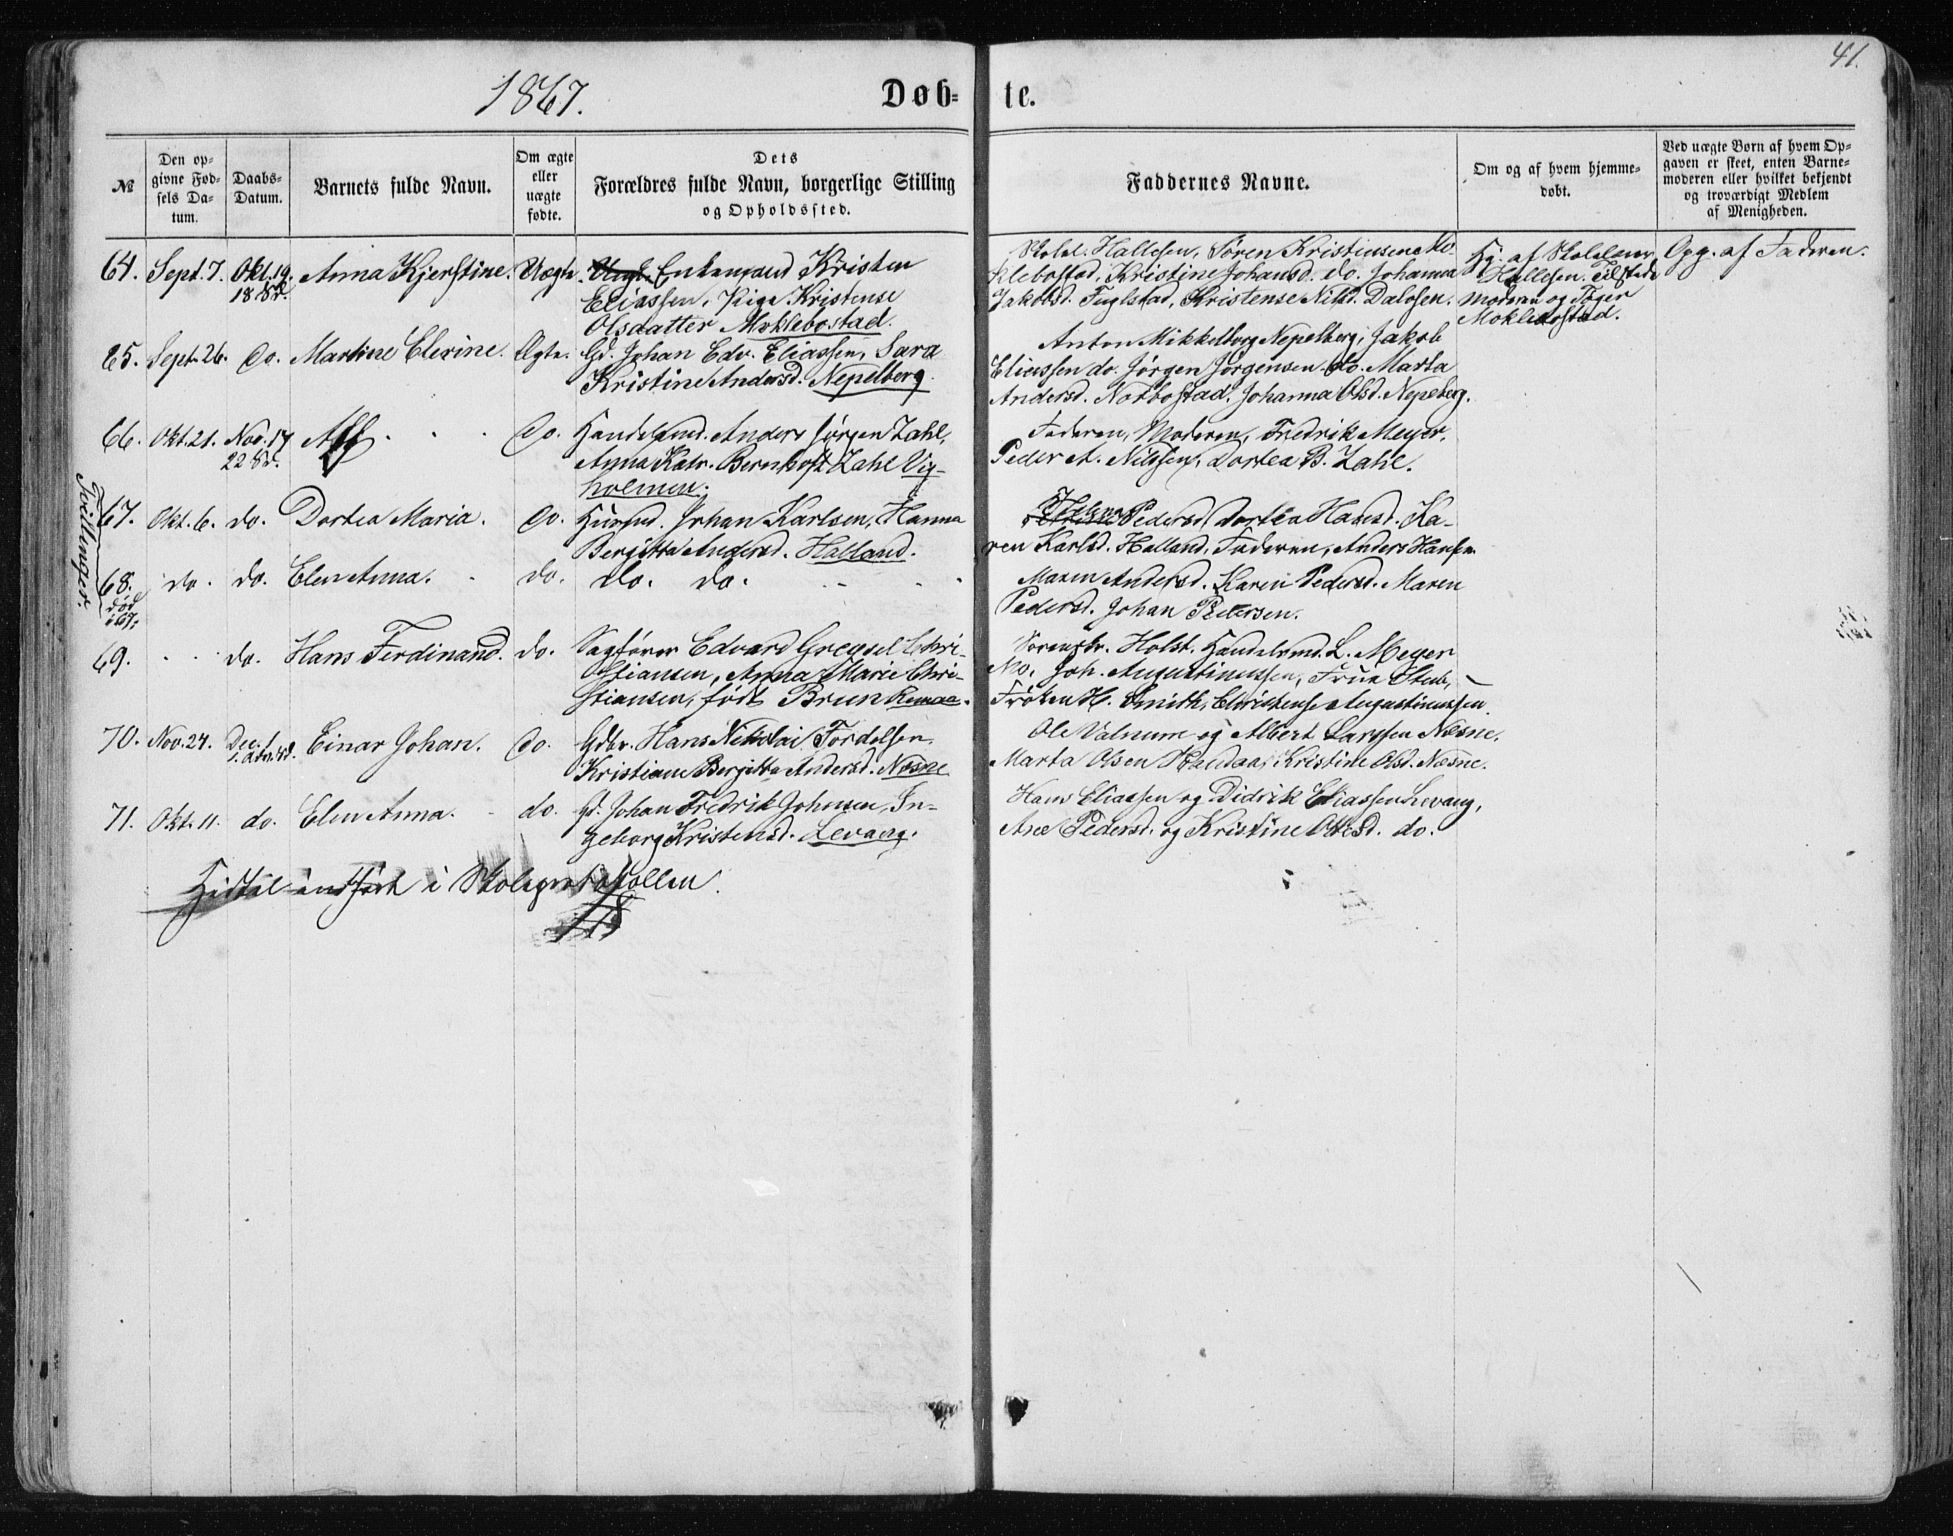 41.
1867.
Døb- te.
№
Den op-
givne Fød-
sels Da-
tum.
Daabs-
Datum.
Barnets fulde Navn.
Om ægte
eller
uægte
fødte.
Dets
Forældres fulde Navn, borgerlige Stilling
og Opholdssted.
Faddernes Navne.
Om og af hvem hjemme-
døbt.
Ved uægte Børn af hvem Op-
gaven er skeet, enten Barne-
moderen eller hvilket bekjendt
og troværdigt Medlem
af Menigheden.
64. Sept. 7. Okt. 19. Anna Kjerstine. Uægte. Enkemand Kristen
Eliassen, Pige Kristense
Olsdatter Moklebostad.
Skolel. Hallesen, Søren Kristiensen Mo-
klebostad, Kristine Johansd. do. Johanna
Jakobsd. Fuglstad, Kristense Nilsd. Dalosen.
Hj. af Skolelærer
Hallesen. Tilstede
Moderen og
Moklebostad.
Opg. af Faderen.
65. Sept. 26. do. Martine Elerine. Ægte. Gd. Johan Edv. Eliassen, Sara
Kristine Andersd. Nepelberg.
Anton Mikkelborg Nepelberg, Jakob
Eliassen do. Jørgen Jørgensen do. Marta
Andersd. Notbostad. Johanna Olsd. Nepelberg.
66. Okt. 21. Nov. 17 Alf do. Handelsmd. Anders Jørgen Zahl,
22 S.
Anna Katr. Bernhoft Zahl Vig-
holmen.
Faderen, Moderen, Fredrik Meyer,
Peder A. Nilssen, Dortea B. Zahl.
Tvillinger.
67. Okt. 6. do. Dortea Maria. do. Husmd. Johan Karlsen, Hanna
Bergitta Andersd. Halland.
Pedersd. Dortea Hansd. Ka-
ren Karlsd. Halland, Faderen, Anders Hansen
68. do. do. Elen Anna. do. do. do.
død
i 67.
Maren Andersd. Karen Pedersd. Maren
Pedersd. Johan Petersen.
69. do. Hans Ferdinand. do. Sagfører Edvard Chri-
stiansen, Anna Marie Chri-
stiansen, født Brun Remaa.
Sorenskr. Holst. Handelsmd. L. Meyer
Mo, Joh. Augustinussen, Frue Stub,
Frøken H. Smith, Christense Augustinussen.
70. Nov. 24. Dec. 1 Einar Johan. do. Gdbr. Hans Nikolai Tordelsen,
1. Adv. Sd.
Kristiane Bergitta Andersd. Næsne
Ole Valnum og Albert Larssen Næsne.
Marta Olsen, Kristine Olsd. Næsne.
71. Okt. 11. do. Elen Anna. do. Gd. Johan Fredrik Johnsen, In-
geborg Kristensd. Levang.
Hans Eliassen og Didrik Eliassen Levang,
Ane Pedersd. og Kristine Olsd. do.
Hidtil indført i Skoleprotokollen.